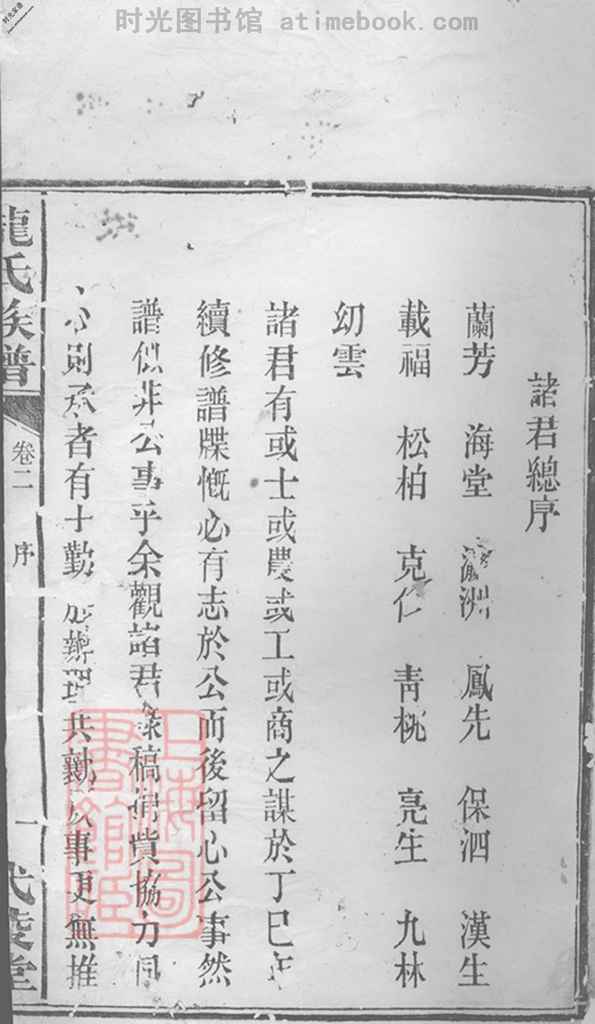 时光图书馆 atimebook.com
諸君總序
蘭芳 海堂 瀛洲 鳳先 保泗 漢生
載福 松柏 克仁 青桃 亮生 九林
幻雲
諸君有或士或農或工或商之謀於丁巳年
續修譜牒慨必有志於公而後留心公事然
譜似非公事乎余觀諸君 稿 貲協力同
心則 者有十勤 共勷 事更無推
龍氏族譜 卷二 序 一 武陵堂
上海圖書館藏